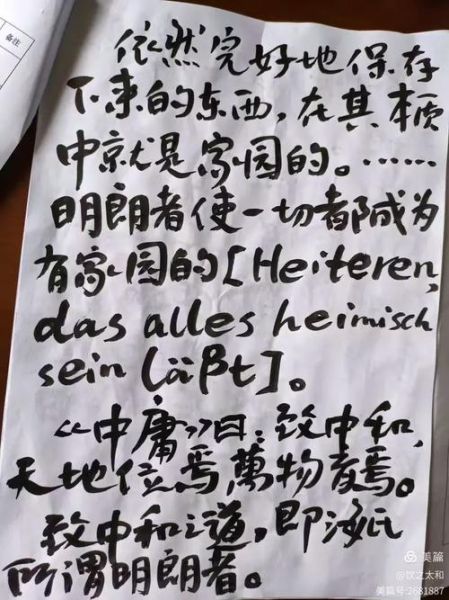 备注
依然完好地保存
下来的东西，在其本质
中就是家园的。……
明朗者使一切都成为
有家园的[Heiteren,
das alles heimisch
sein läßt]。
《中庸》曰：致中和，
天地位焉萬物育焉。
致中和之道，即海氏
所谓明朗者。
美篇
@饮之太和
美篇号:2681887